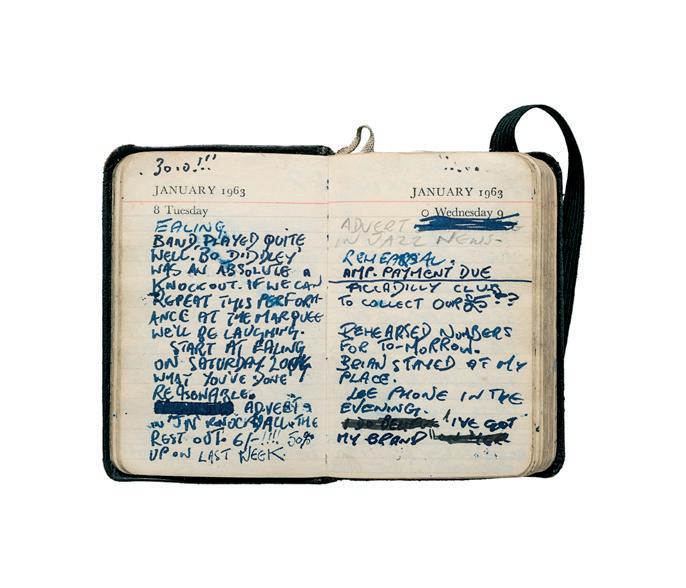 30.10!!!
JANUARY 1963
8 Tuesday
EALING.
BAND PLAYED QUITE
WELL. BO DIDDLEY
WAS AN ABSOLUTE
KNOCKOUT. IF WE CAN
REPEAT THIS PERFORM-
ANCE AT THE MARQUEE
WE'LL BE LAUGHING.
START AT EALING
ON SATURDAY
WHAT YOU'VE DONE
REASONABLE.
ADVERT
IN "JN" KNOCK ALL THE
REST OUT. 6/-!!!! 50%
UP ON LAST WEEK.
JANUARY 1963
Wednesday 9
ADVERT
IN JAZZ NEWS.
REHEARSAL.
AMP. PAYMENT DUE
PICCADILLY CLUB
TO COLLECT OUR ??
REHEARSED NUMBERS
FOR TO-MORROW.
BRIAN STAYED AT MY
PLACE.
PHONE IN THE
EVENING.
"I'VE GOT
MY BRAND"